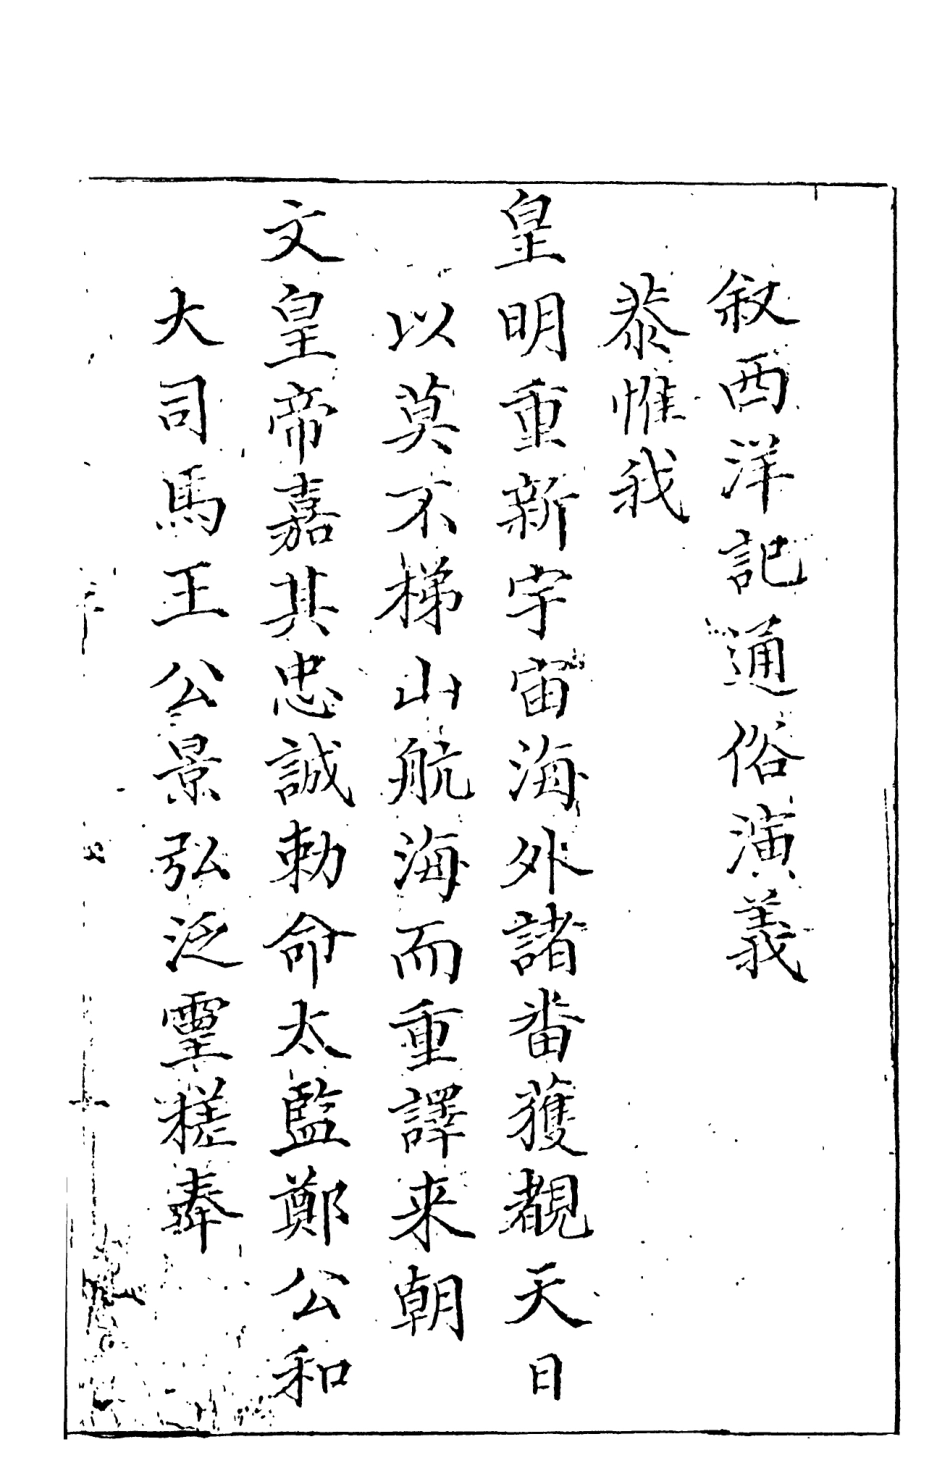 叙西洋記通俗演義
恭惟我
皇明重新宇宙海外諸畨獲覩天日
以莫不梯山航海而重譯来朝
文皇帝嘉其忠誠勅命太監鄭公和
大司馬王公景弘泛霊槎奉